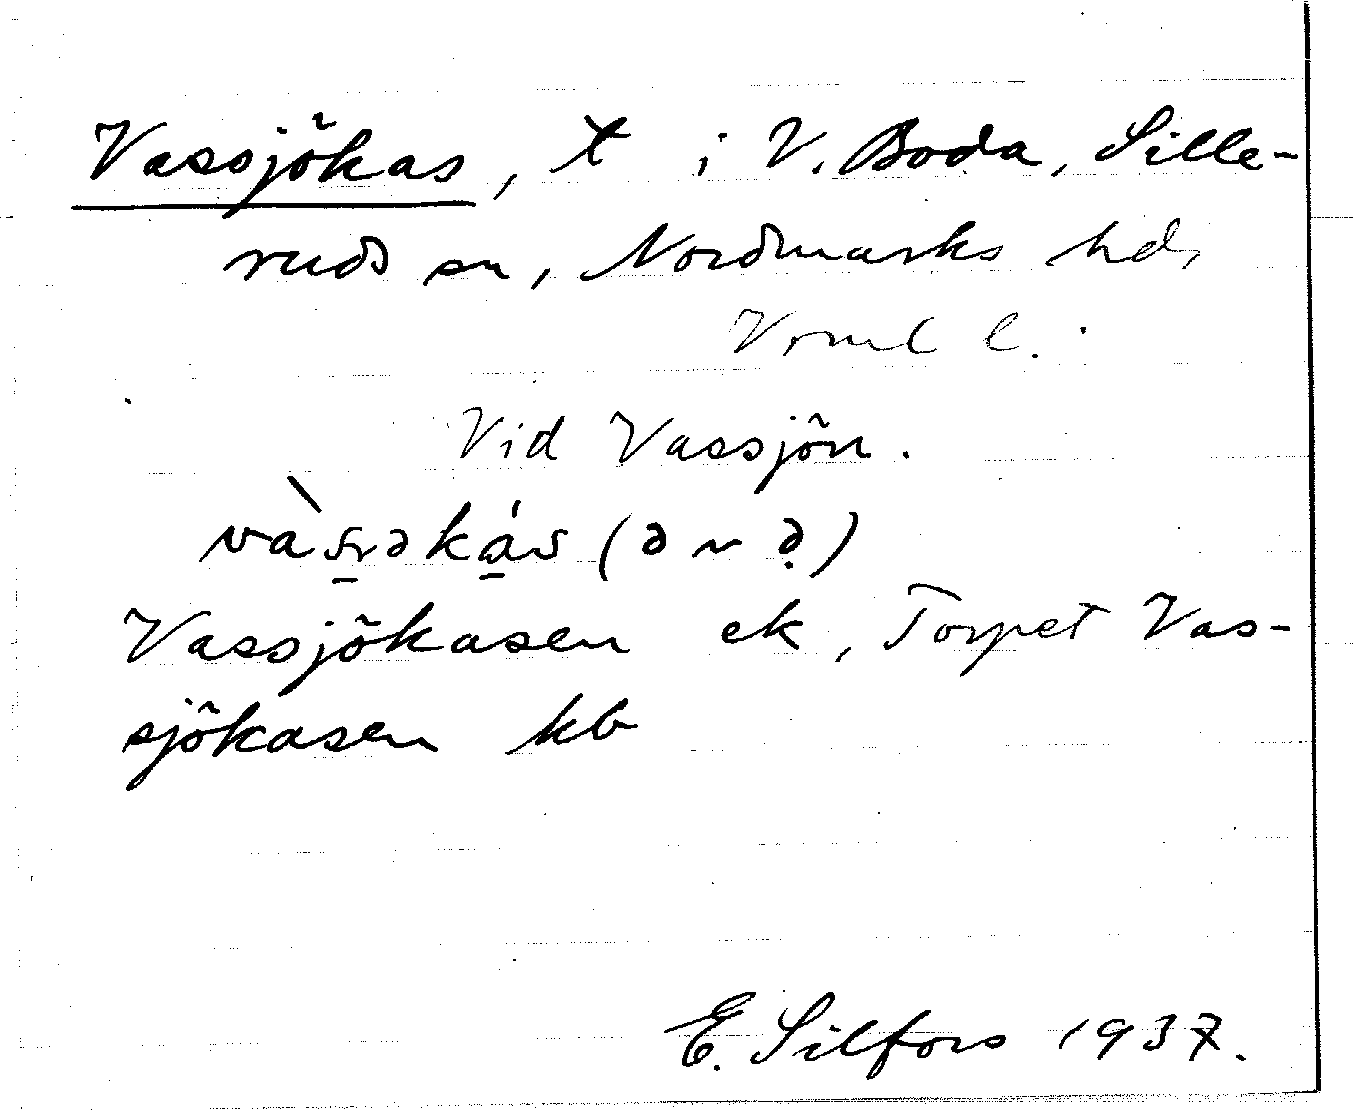 Vassjökas, t i V. Boda, Sille-
ruds sn, Nordmarks hd,
Vrml l.
Vid Vassjön.
(ə ~ ə̣)
Vassjökasen ek, Torpet Vas-
sjökasen kb
E. Silfors 1937.